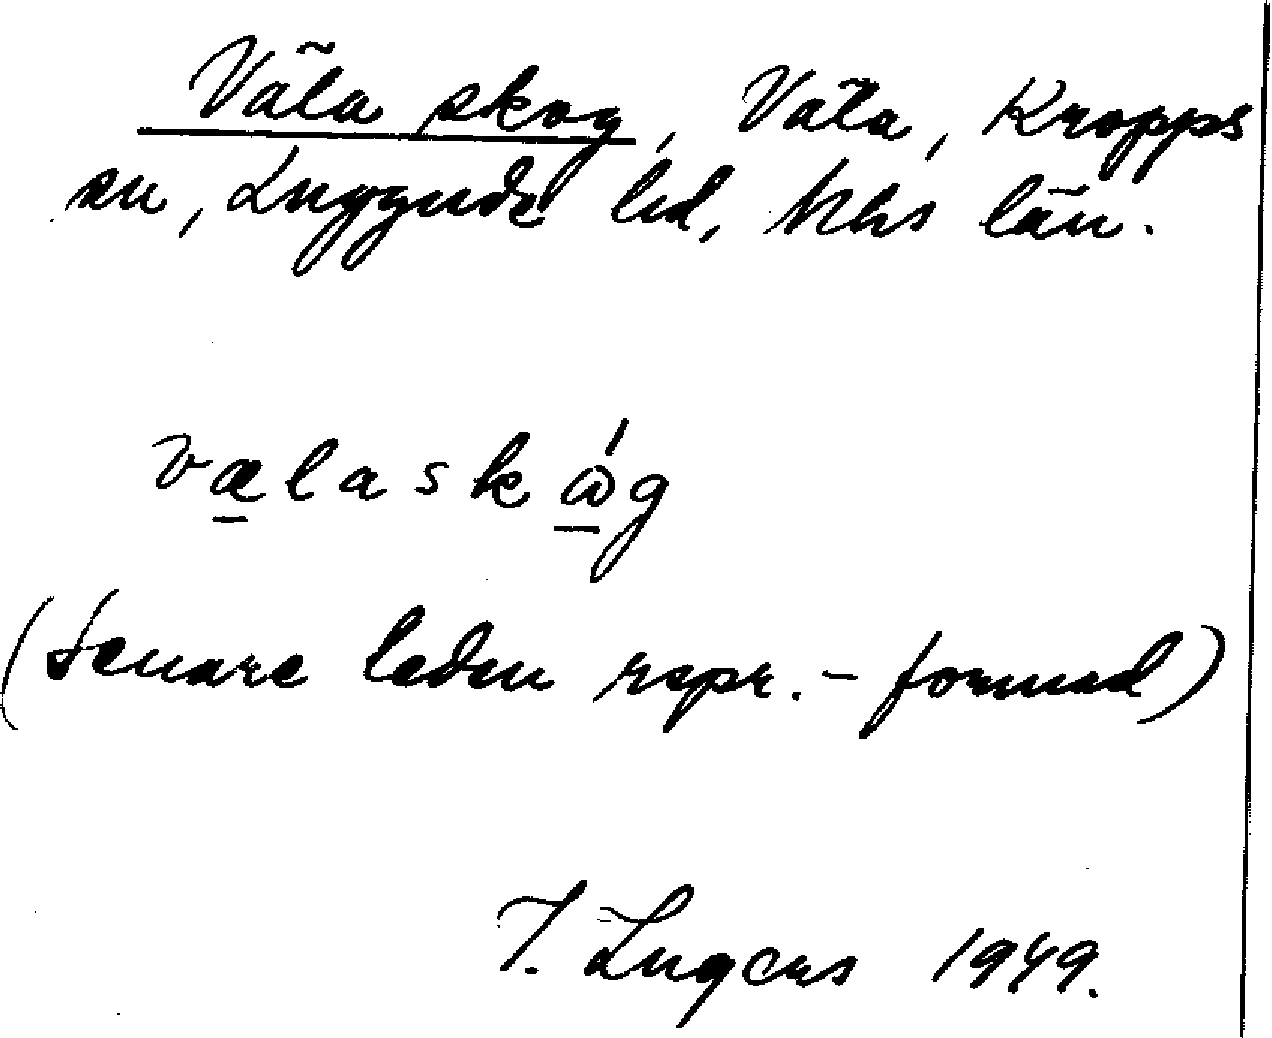 Väla skog, Väla, Kropps
sn, Luggude hd, Mhs län.
vælaskǻg
(Senare leden repr.-formad)
T. Ingers 1949.